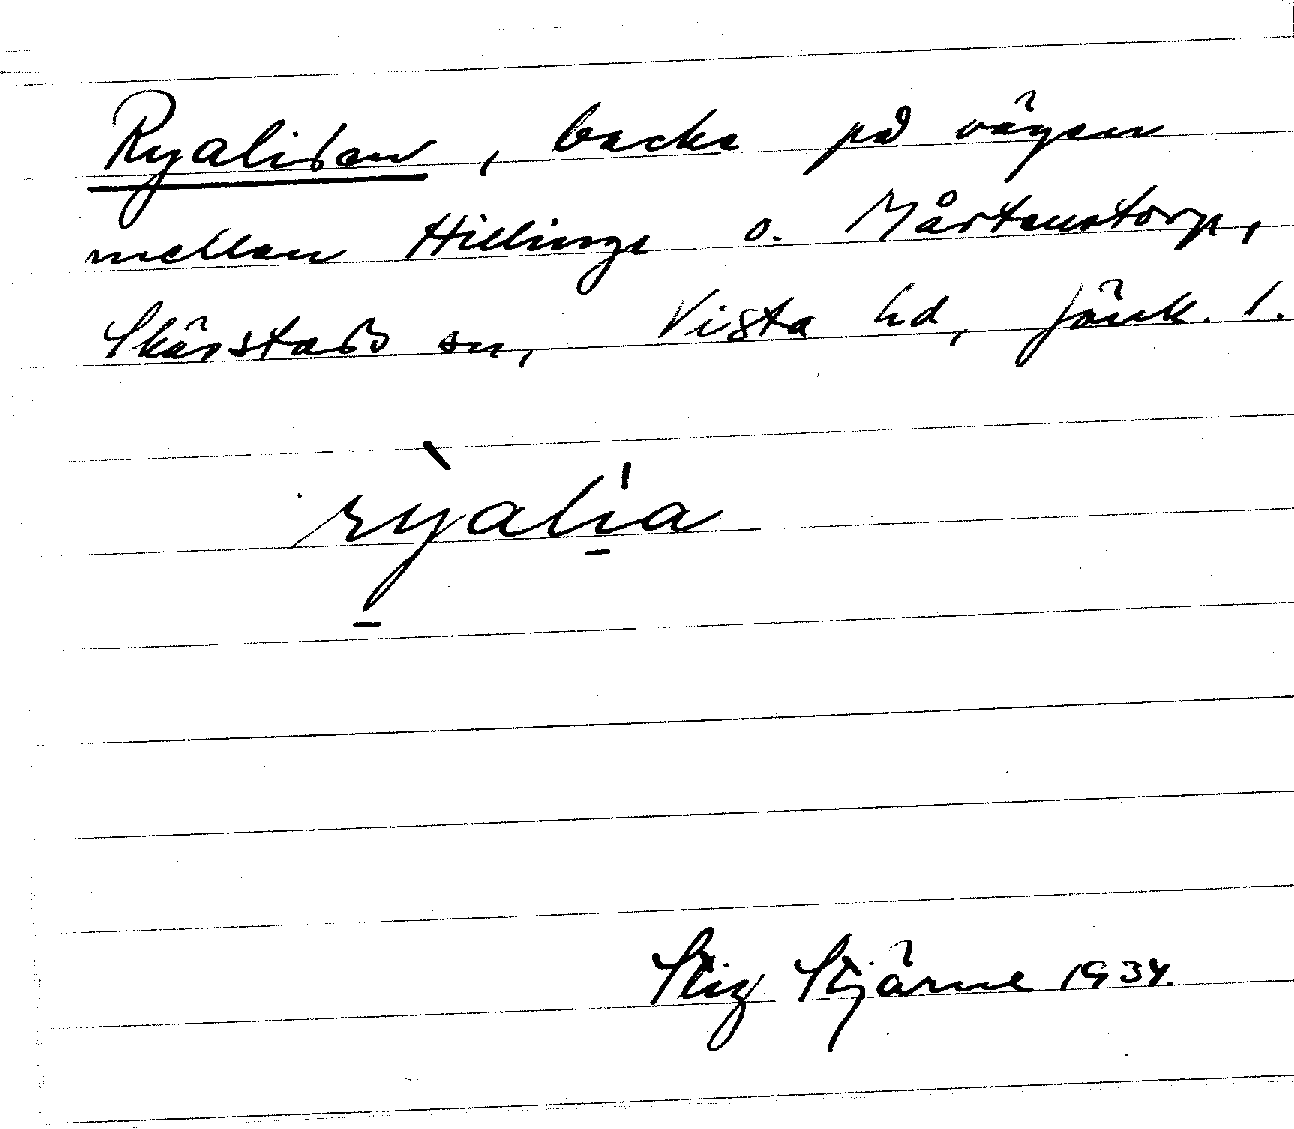 Ryalidan, backe på vägen
mellan Hillinge o. Mårtenstorp,
Skärstads sn, Vista hd, Jönk. l.
rỳ̠alí̠a
Stig Stjärne 1934.